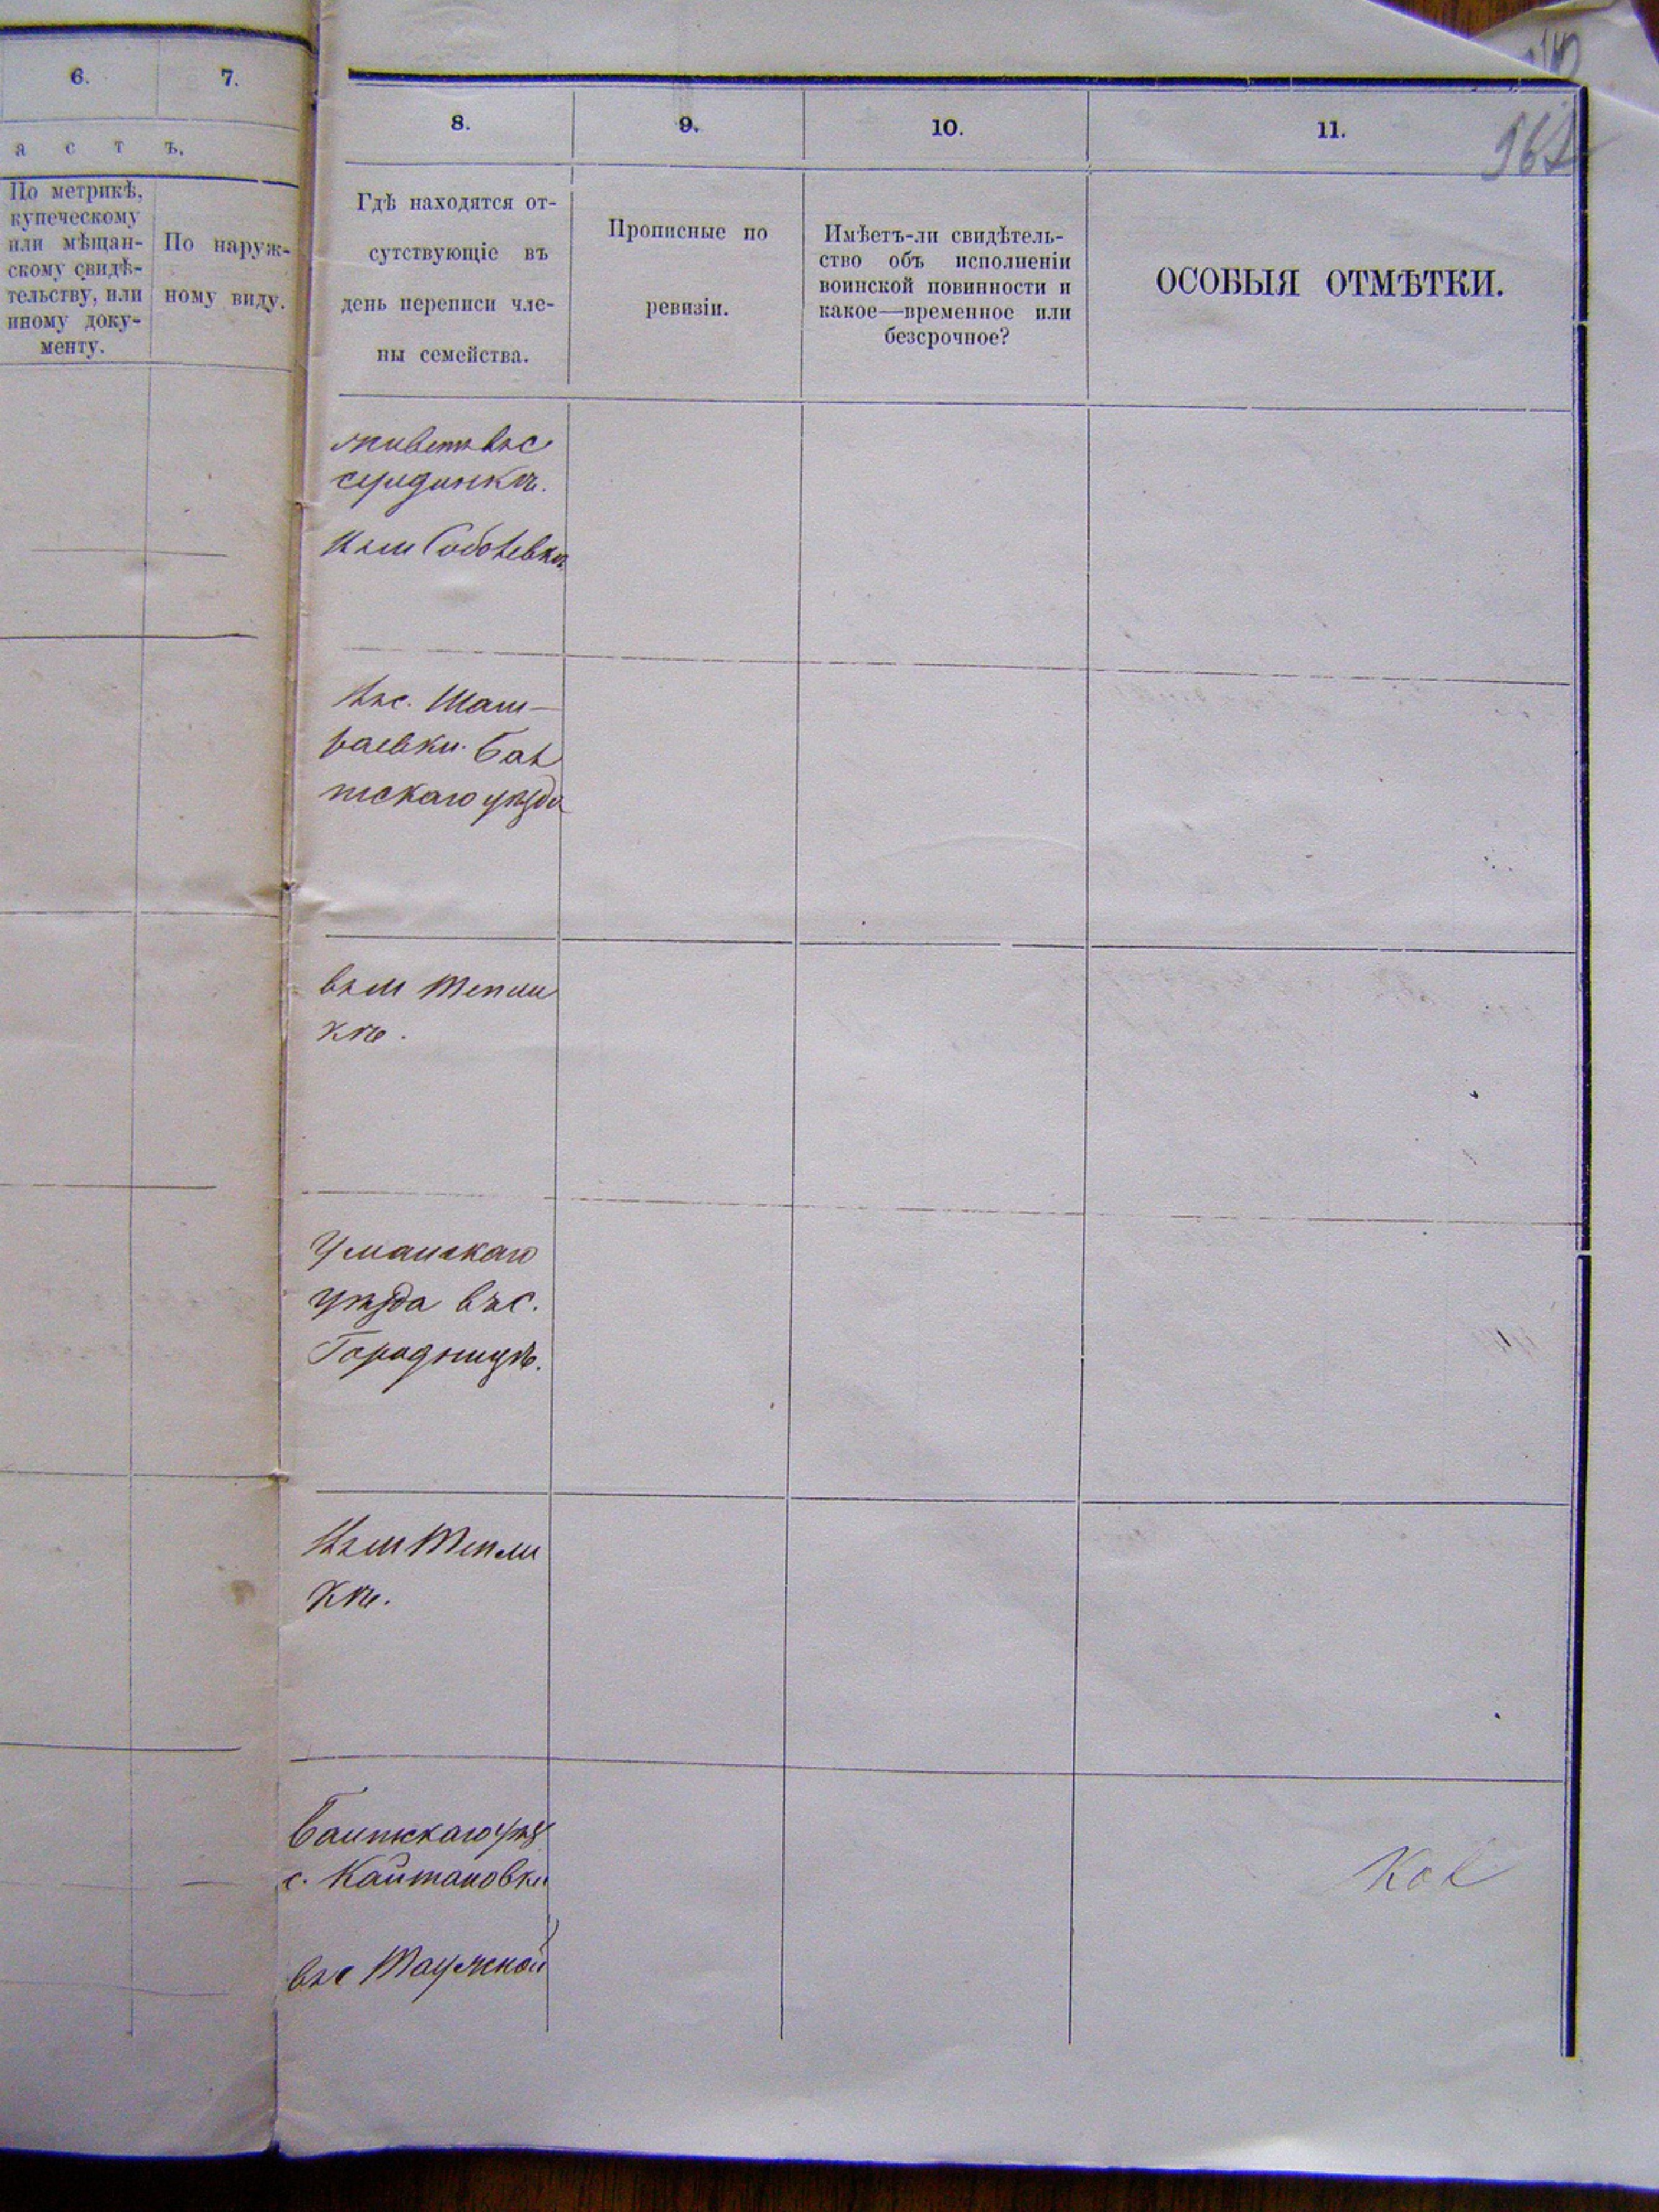 6.
7.
а с т ъ.
По метрикѣ,
купеческому
или мѣщан-
скому свидѣ-
тельству, или
иному доку-
менту.
По наруж-
ному виду.
8.
9.
10.
11.
Гдѣ находятся от-
сутствующіе въ
день переписи чле-
ны семейства.
Прописные по
ревизіи.
Имѣетъ-ли свидѣтель-
ство объ исполненіи
воинской повинности и
какое—временное или
безсрочное?
ОСОБЫЯ ОТМѢТКИ.
живетъ въ с
серединкѣ.
Въ м Соболевкѣ
Въ с. Шам-
раевки Бал
тскаго уѣзда
въ м Тепли
кѣ.
Уманскаго
уѣзда въ с.
Городницѣ.
Въ м Тепли
кѣ.
Балтскаго уѣз
с. Каитановки
въ с Таужной